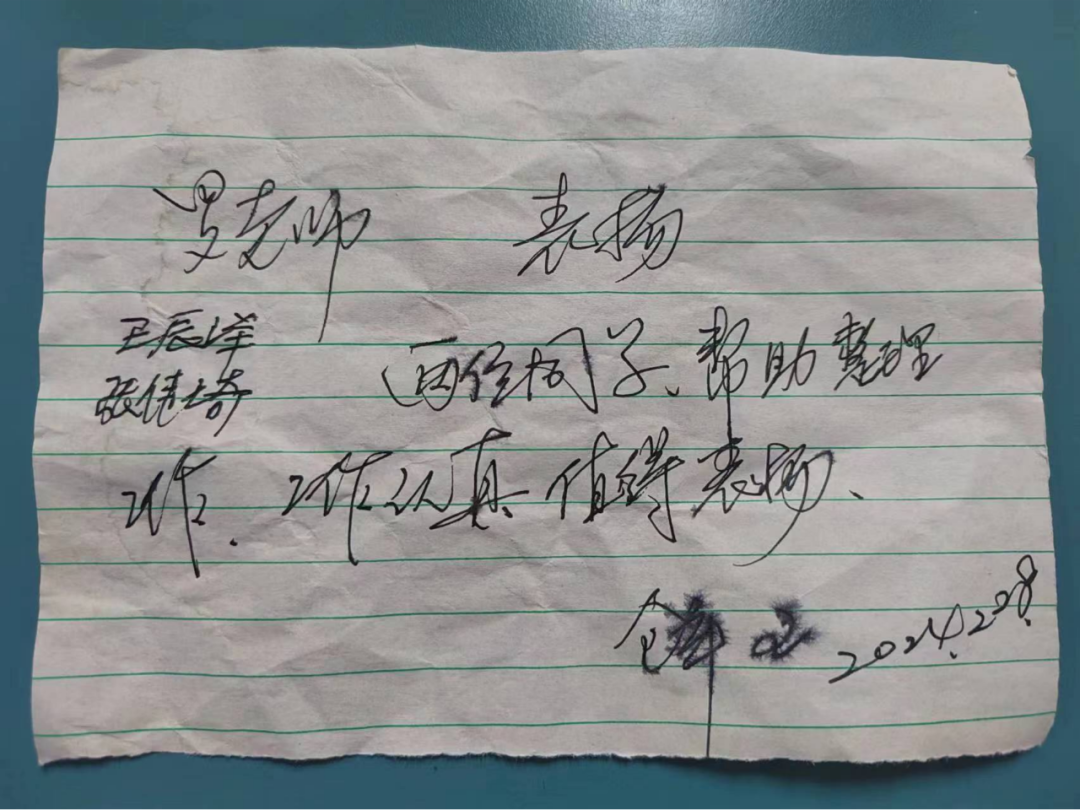 罗老师 表扬
王辰洋
张倩琦 两位同学、帮助整理
工作. 工作认真 值得表扬、
2024.2.28.